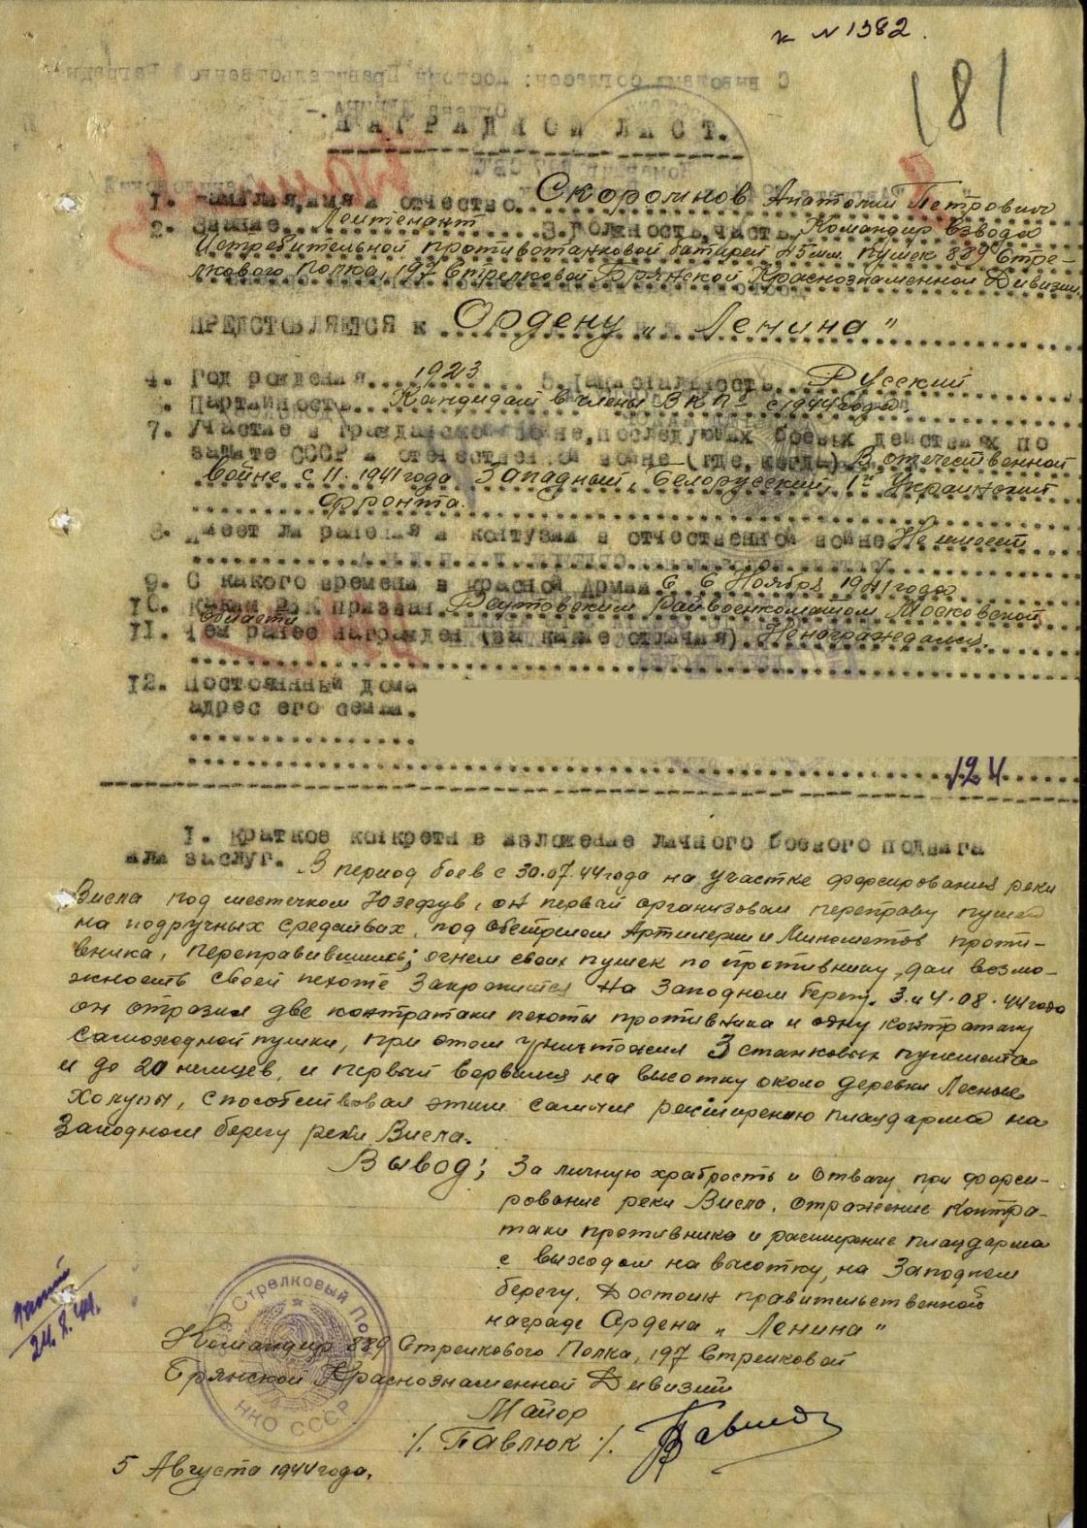 к №1382.
181
НАГРАДНОЙ ЛИСТ.
1. Фамилия, имя и отчество Скоромнов Анатолий Петрович
2. Звание Лейтенант 3. Должность, часть Командир взвода
Истребительной противотанковой батареи 45мм пушек 889 Стре-
лкового Полка, 197 Стрелковой Брянской Краснознаменной Дивизии
ПРЕДСТОВЛЯЕТСЯ к Ордену „Ленина"
4. Год рождения 1923 5. Национальность Русский
6. Партийность Кандидат в члены ВКПб с 1944 года
7. Участие в гражданской войне, последующих боевых действиях по
защите СССР и отечественной войне (где, когда) В отечественной
войне с 11.1941 года Западный, Белорусский, 1й Украинский
фронта.
8. Имеет ли ранения и контузии в отчественной войне Не имеет
9. С какого времени в Красной Армии С 6 Ноября 1941 года
10. Каким РВК призван Реутовским Райвоенкоматом Московской
области
11. Чем ранее награжден (за какие отличия) Ненаграждался.
12. Постоянный дома
адрес его семьи.
124
I. Краткое конкретн в изложение личного боевого подвига
или заслуг. В период боев с 30.07.44 года на участке форсирования реки
Висла под местечком Юзефув, он первый организовал переправу пушек
на подручных средствах, под обстрелом Артилерии и Минометов проти-
вника, переправившись; огнем своих пушек по противнику, дал возмо-
жность своей пехоте закрепится на Западном берегу. 3 и 4.08.44 года
он отразил две контратаки пехоты противника и одну контратаку
самоходной пушки, при этом уничтожил 3 станковых пулемета
и до 20 немцев, и первый ворвался на высотку около деревни Лесные
Халупы, способствовал этим самым расширению плацдарма на
Западном берегу реки Висла.
Вывод; За личную храбрость и Отвагу при форси-
рование реки Висла, отражение Контра-
таки противника и расширение плацдарма
с выходом на высотку, на Западном
берегу. Достоин правительственной
награде Ордена „Ленина"
Стрелковый По
НКО СССР
24.8.44.
Командир 889 Стрелкового Полка, 197 Стрелковой
Брянской Краснознаменной Дивизии
Майор
/. Павлюк /.
5 Августа 1944 года.